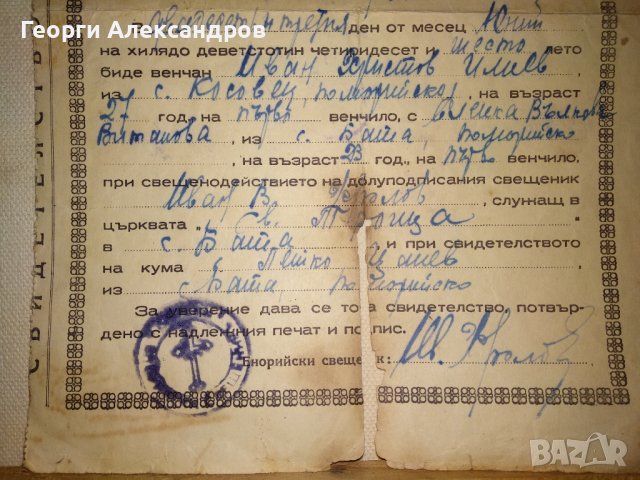 Георги Александров
СВИДЕТЕЛСТВ
двадесет и третия ден от месец Юний
на хилядо деветстотин четиридесет и шесто лето
биде венчан Иван Христов Илиев
из с. Косовец, поморийско, на възраст
27 год, на първо венчило, с Вълкова
из с. Бата, поморийско
, на възраст 23 год., на първо венчило,
при свещенодействието на долуподписания свещеник
Иван В. , служащ в
църквата Св. Троица
в с. Бата, и при свидетелството
на кума Петко Цанев
из с. Бата, поморийско
За уверение дава се това свидетелство, потвър-
дено с надлежния печат и подпис.
Енорийски свещеник:
BAZAR